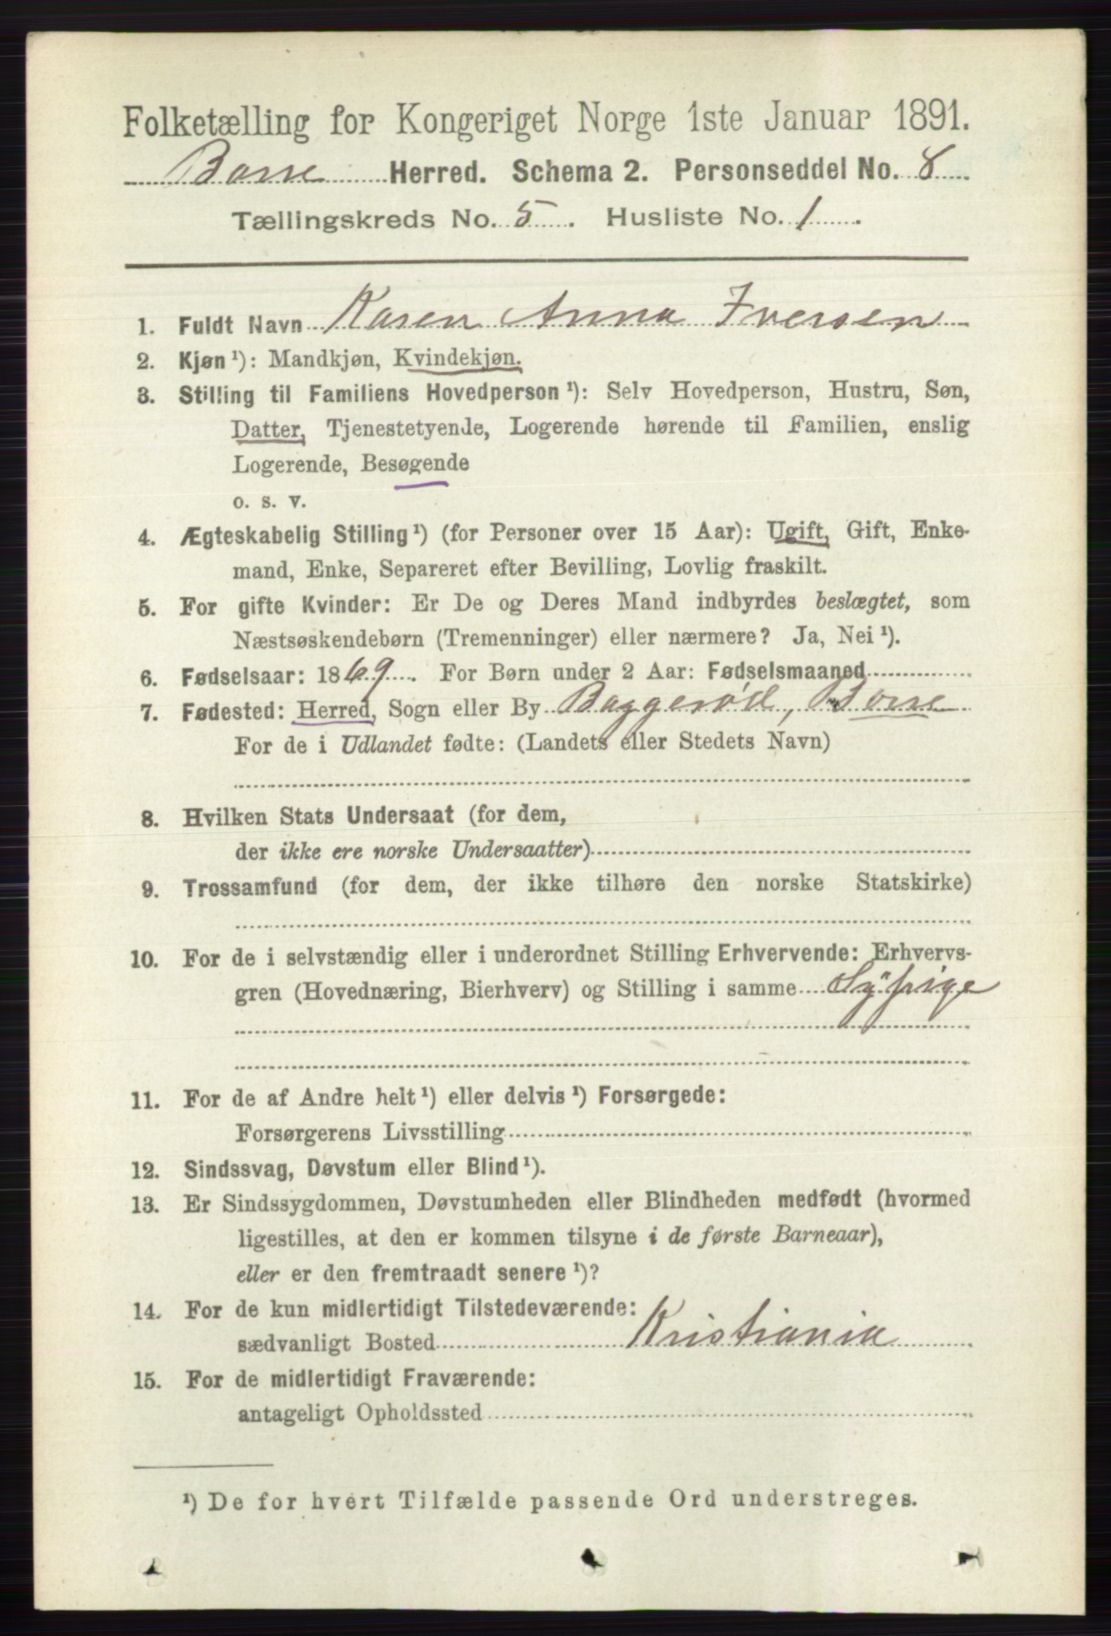 Folketælling for Kongeriget Norge 1ste Januar 1891.
Borre Herred. Schema 2. Personseddel No. 8
Tællingskreds No. 5. Husliste No. 1.
1. Fuldt Navn Karen Anna Iversen
2. Kjøn¹): Mandkjøn, Kvindekjøn.
3. Stilling til Familiens Hovedperson¹): Selv Hovedperson, Hustru, Søn,
Datter, Tjenestetyende, Logerende hørende til Familien, enslig
Logerende, Besøgende
o. s. v.
4. Ægteskabelig Stilling¹) (for Personer over 15 Aar): Ugift, Gift, Enke-
mand, Enke, Separeret efter Bevilling, Lovlig fraskilt.
5. For gifte Kvinder: Er De og Deres Mand indbyrdes beslægtet, som
Næstsøskendebørn (Tremenninger) eller nærmere? Ja, Nei¹).
6. Fødselsaar: 1869. For Børn under 2 Aar: Fødselsmaaned
7. Fødested: Herred, Sogn eller By Baggerød, Borre
For de i Udlandet fødte: (Landets eller Stedets Navn)
8. Hvilken Stats Undersaat (for dem,
der ikke ere norske Undersaatter)
9. Trossamfund (for dem, der ikke tilhøre den norske Statskirke)
10. For de i selvstændig eller i underordnet Stilling Erhvervende: Erhvervs-
gren (Hovednæring, Bierhverv) og Stilling i samme Sypige
11. For de af Andre helt¹) eller delvis¹) Forsørgede:
Forsørgerens Livsstilling
12. Sindssvag, Døvstum eller Blind¹).
13. Er Sindssygdommen, Døvstumheden eller Blindheden medfødt (hvormed
ligestilles, at den er kommen tilsyne i de første Barneaar),
eller er den fremtraadt senere¹)?
14. For de kun midlertidigt Tilstedeværende:
sædvanligt Bosted Kristiania
15. For de midlertidigt Fraværende:
antageligt Opholdssted
¹) De for hvert Tilfælde passende Ord understreges.